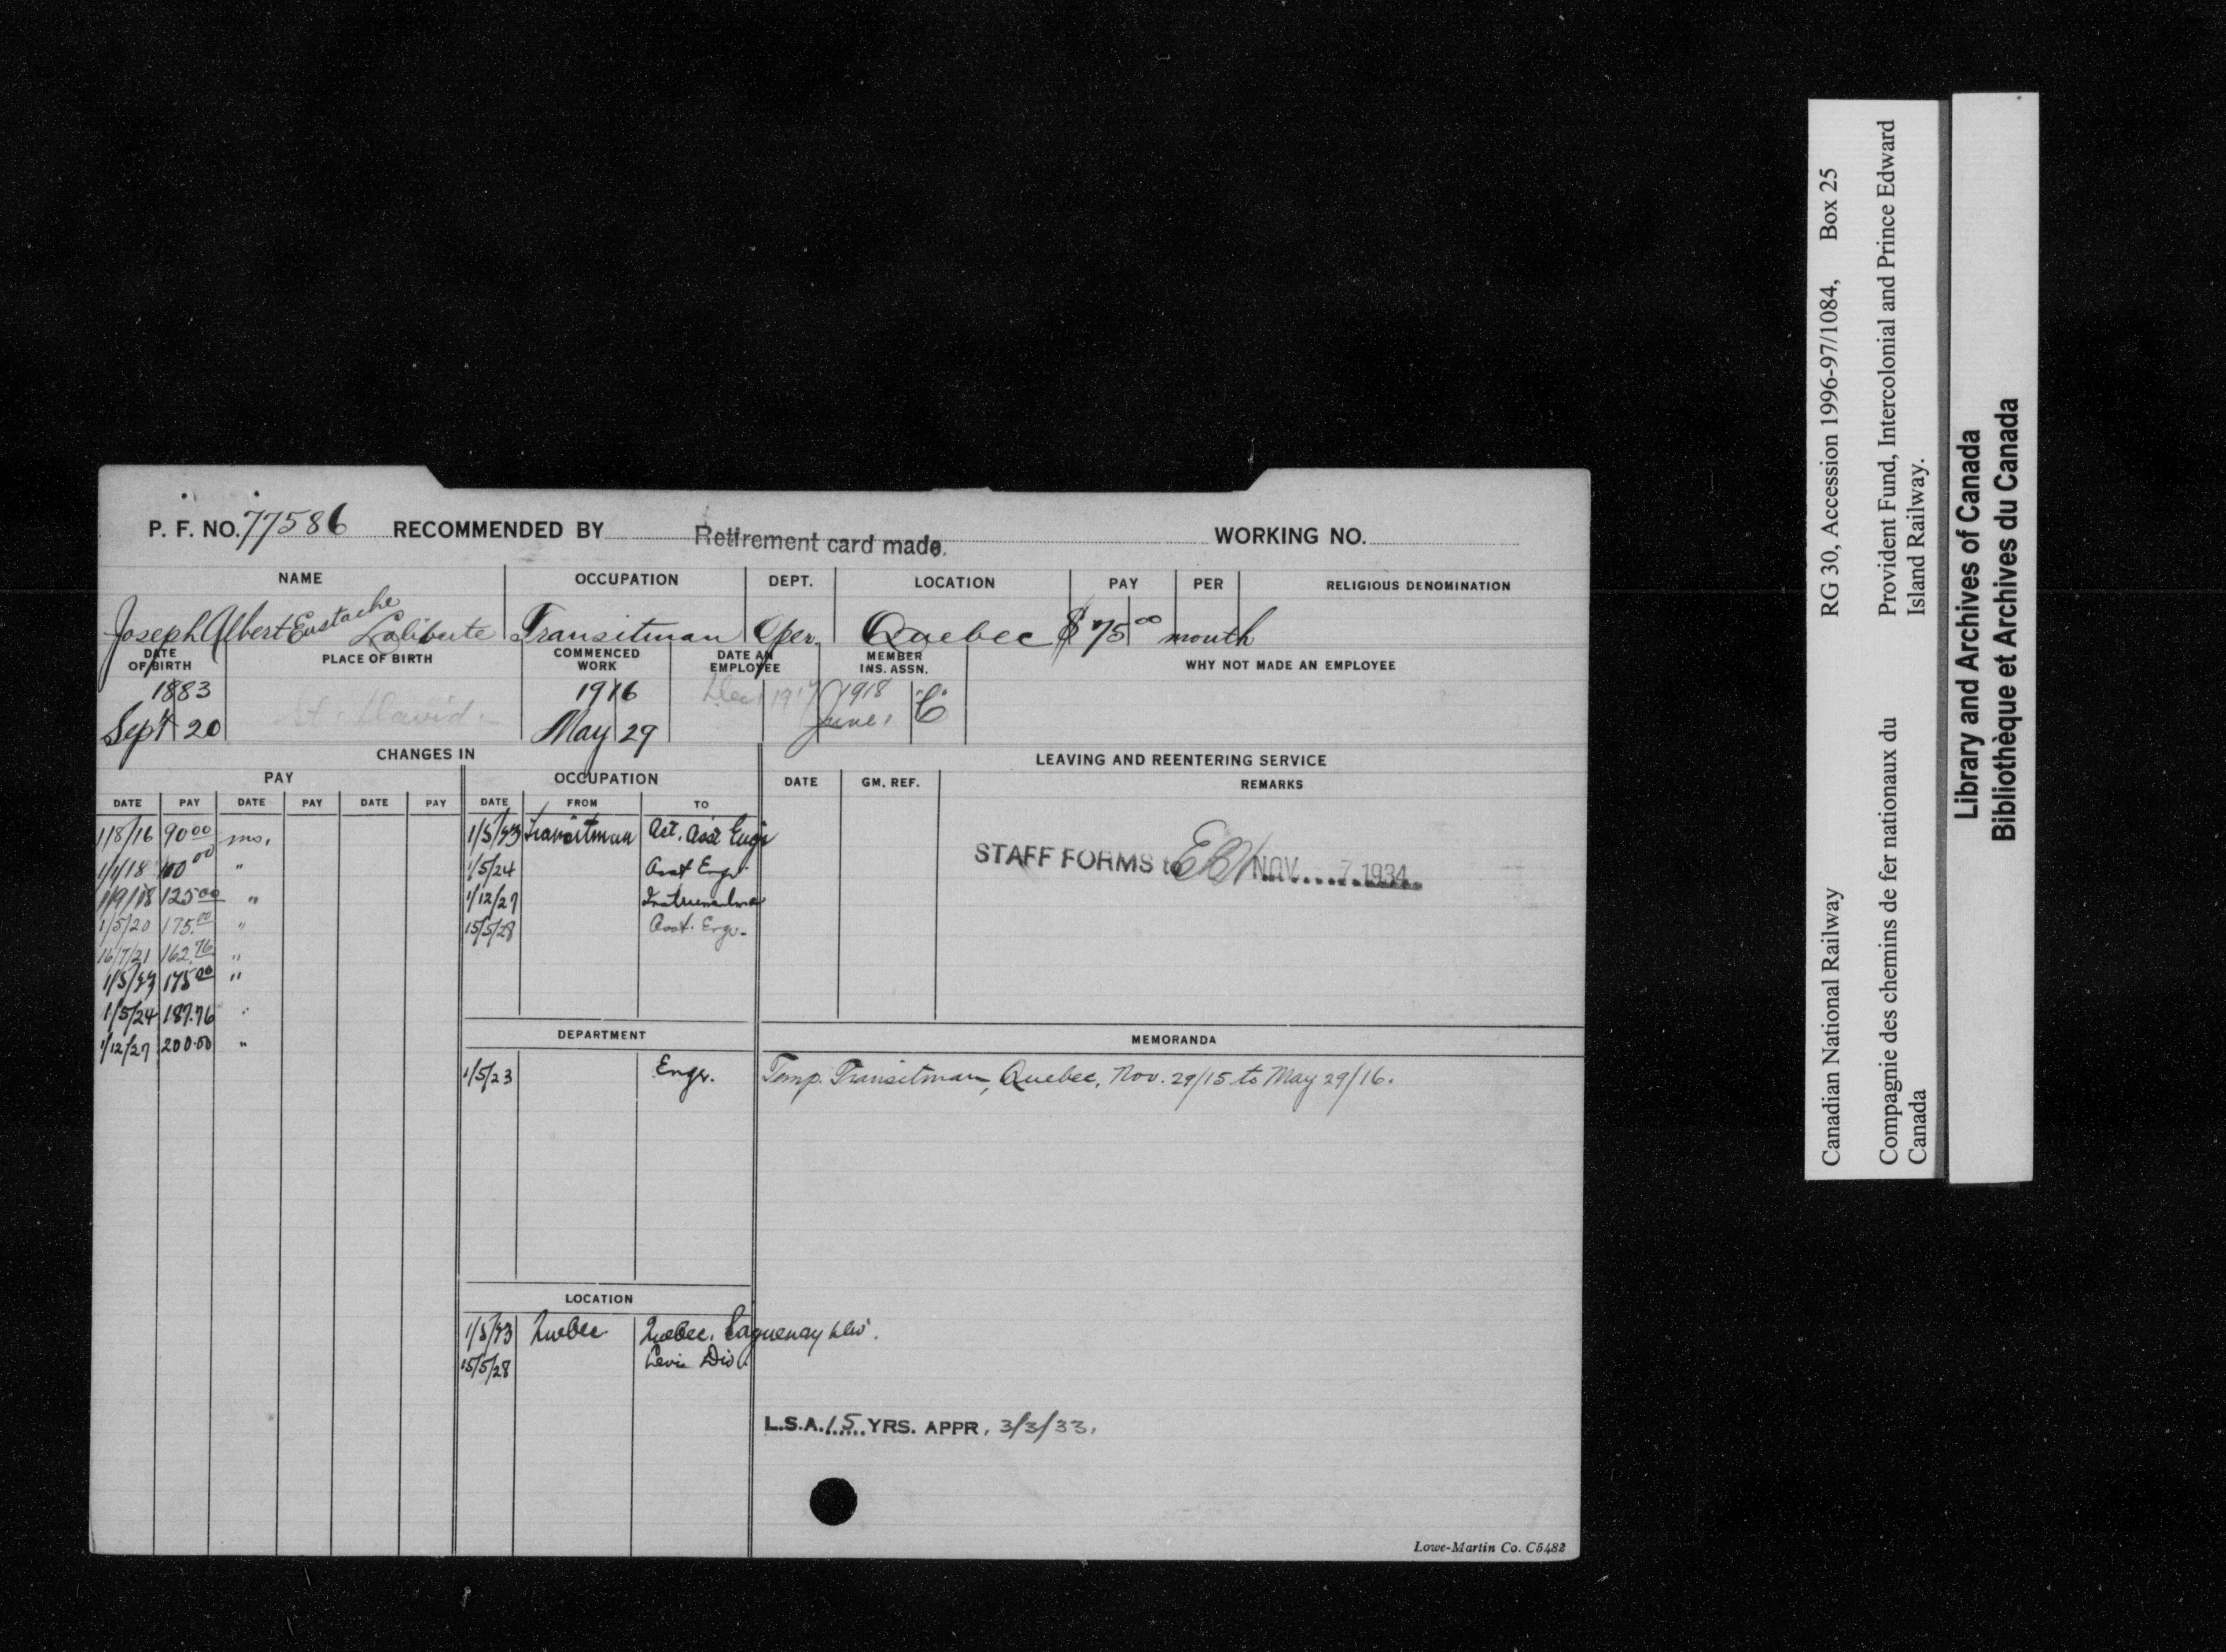 P. F. NO. 77586 RECOMMENDED BY Retirement card made. WORKING NO.
NAME OCCUPATION DEPT. LOCATION PAY PER RELIGIOUS DENOMINATION
Joseph Albert Eustache Laliberte Transitman Oper. Quebec $75 00 month
DATE OF BIRTH PLACE OF BIRTH COMMENCED WORK DATE AN EMPLOYEE MEMBER INS. ASSN. WHY NOT MADE AN EMPLOYEE
1883 1916 Dec 1917 1918 "C"
Sept 20 St. David May 29 June 1
CHANGES IN LEAVING AND REENTERING SERVICE
PAY OCCUPATION DATE GM. REF. REMARKS
DATE PAY DATE PAY DATE PAY DATE FROM TO
1/8/16 90 00 mo. 1/5/23 Transitman Act. Asst Engr
1/1/18 100 00 " 1/5/24 Asst Engr
STAFF FORMS to NOV. 7 1934
1/9/18 125 00 " 1/12/27 Instrumentman
1/5/20 175.00 " 15/5/28 Asst. Engr.
16/7/21 162.76 "
1/5/23 175 00 "
1/5/24 187.76 "
1/12/27 200.00 "
DEPARTMENT MEMORANDA
1/5/23 Engr. Temp. Transitman, Quebec, Nov. 29/15 to May 29/16.
LOCATION
1/5/23 Quebec Quebec. Saguenay Div.
15/5/28 Levis Div.
L.S.A. 15 YRS. APPR. 3/3/33.
Lowe-Martin Co. C5482
Canadian National Railway RG 30, Accession 1996-97/1084, Box 25
Compagnie des chemins de fer nationaux du Canada
Provident Fund, Intercolonial and Prince Edward Island Railway.
Library and Archives of Canada
Bibliothèque et Archives du Canada